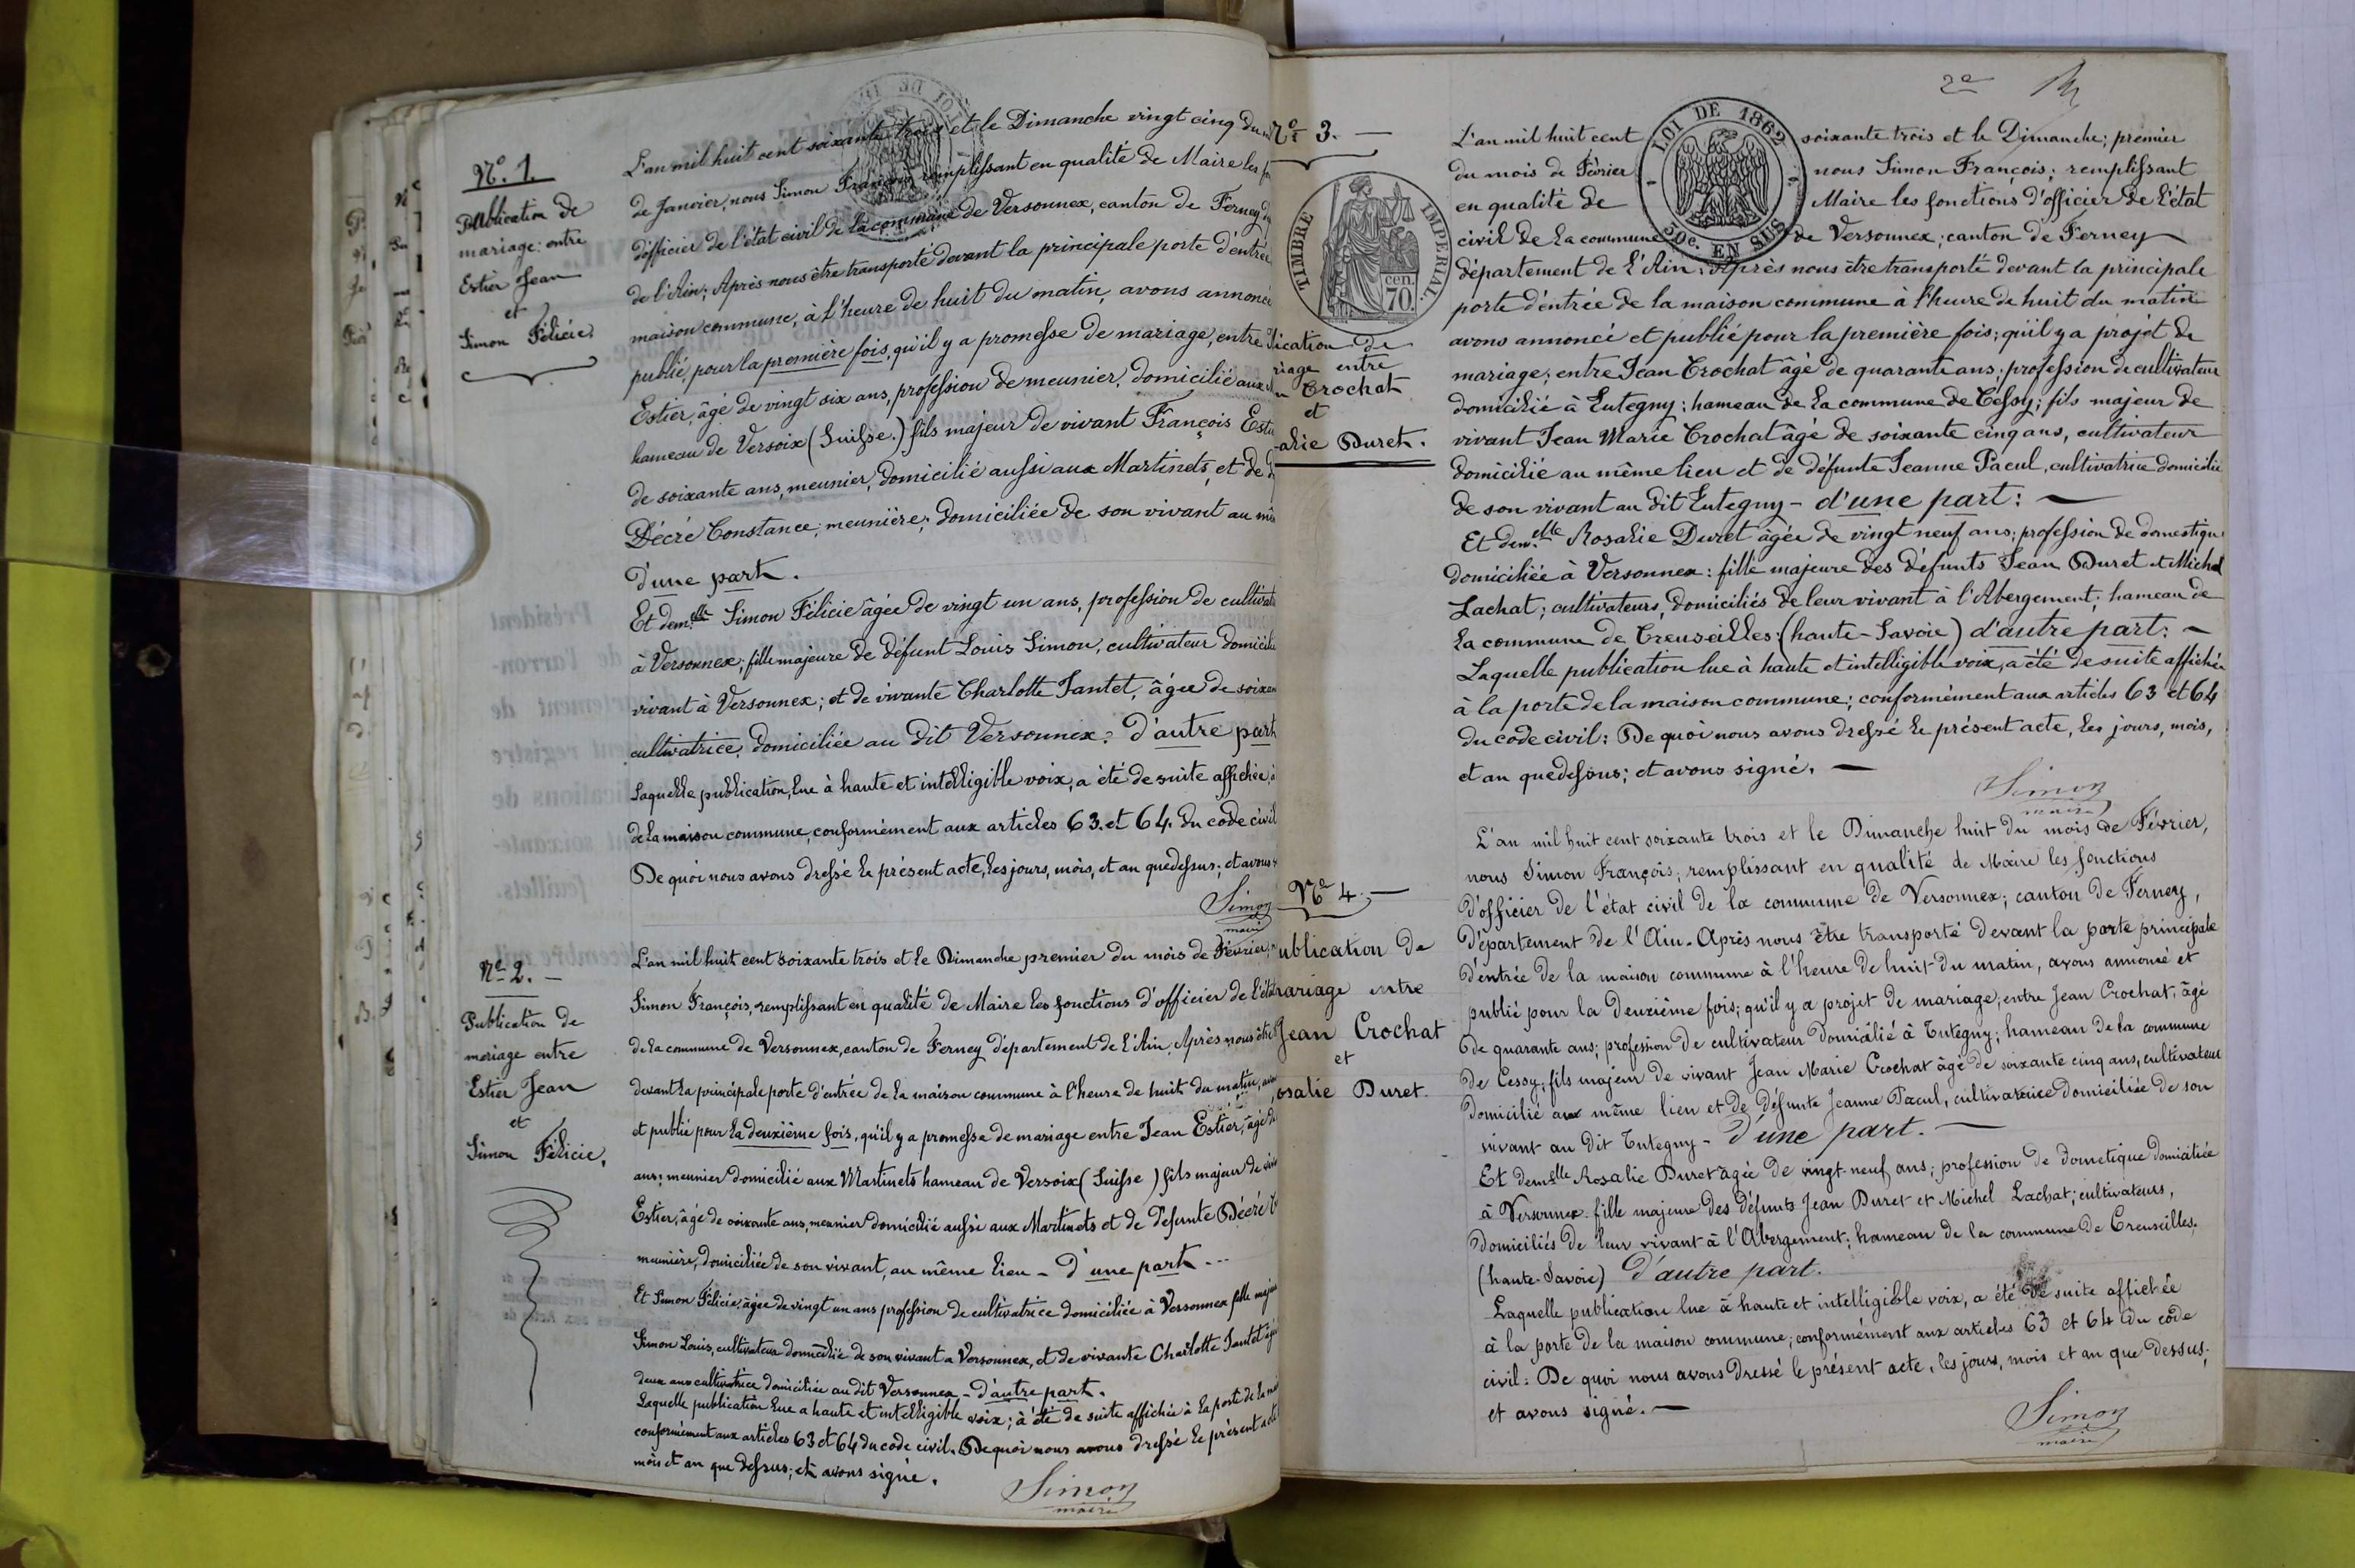 Nº. 1.
Publication de
mariage: entre
Estier Jean
et
Simon Félicie,
L'an mil huit cent soixante trois et le Dimanche vingt cinq du
de Janvier, nous Simon François remplissant en qualité de Maire les
d'officier de l'état civil de la commune de Versonnex, canton de Ferney
de l'Ain; Après nous être transporté devant la principale porte d'entrée
maison commune, à l'heure de huit du matin, avons annoncé
publié, pour la première fois, qu'il y a promesse de mariage, entre
Estier, âgé de vingt six ans, profession de meunier, domicilié aux
hameau de Versoix (Suisse.) fils majeur de vivant François
de soixante ans, meunier, domicilié aussi aux Martinets, et de
Décré Constance; meunière; domiciliée de son vivant au
d'une part.
Et dem.elle Simon Félicie âgée de vingt un ans, profession de
à Versonnex; fille majeure de défunt Louis Simon, cultivateur
vivant à Versonnex; et de vivante Charlotte Jantet, âgée de
cultivatrice, domiciliée au dit Versonnex: d'autre part
Laquelle publication, lue à haute et intelligible voix, a été de suite affichée,
de la maison commune, conformément aux articles 63. et 64. du code civil
De quoi nous avons dressé le présent acte, les jours, mois, et an que dessus; et avons
Simon
maire
Nº 2. –
Publication de
mariage entre
Estier Jean
et
Simon Félicie,
L'an mil huit cent soixante trois et le Dimanche premier du mois de Février;
Simon François, remplissant en qualité de Maire les fonctions d'officier de
de la commune de Versonnex, canton de Ferney département de l'Ain. Après nous
devant la principale porte d'entrée de la maison commune à l'heure de huit du matin,
et publié pour la deuxième fois, qu'il y a promesse de mariage entre Jean Estier, âgé
ans; meunier domicilié aux Martinets hameau de Versoix (Suisse) fils majeur de
Estier, âgé de soixante ans, meunier domicilié aussi aux Martinets et de défunte Décré
meunière, domiciliée de son vivant, au même lieu – d'une part ---
Et Simon Félicie, âgée de vingt un ans profession de cultivatrice domiciliée à Versonnex fille
Simon Louis, cultivateur domicilié de son vivant a Versonnex, et de vivante Charlotte Jantet
deux ans cultivatrice domiciliée au dit Versonnex – d'autre part.
Laquelle publication lue a haute et intelligible voix; à été de suite affichée à la porte de la
conformément aux articles 63 et 64 du code civil. De quoi nous avons dressé le présent
mois et an que dessus; et avons signé.
Simon
maire
2e
Nº 3. —
TIMBRE IMPERIAL.
cen. 70.
lication de
riage entre
Crochat
et
alie Duret.
LOI DE 1862
50c. EN SUS
L'an mil huit cent soixante trois et le Dimanche; premier
du mois de Février nous Simon François; remplissant
en qualité de Maire les fonctions d'officier de l'état
civil de la commune de Versonnex; canton de Ferney
département de l'Ain: Après nous être transporté devant la principale
porte d'entrée de la maison commune à l'heure de huit du matin
avons annoncé et publié pour la première fois; qu'il y a projet de
mariage; entre Jean Crochat âgé de quarante ans; profession de cultivateur
domicilié à Tutegny: hameau de la commune de Cessy; fils majeur de
vivant Jean Marie Crochat âgé de soixante cinq ans, cultivateur
domicilié au même lieu et de défunte Jeanne Pacul, cultivatrice
de son vivant au dit Tutegny – d'une part: —
Et dem.elle Rosalie Duret âgée de vingt neuf ans; profession de domestique
domiciliée à Versonnex: fille majeure des défunts Jean Duret et Michel
Lachat; cultivateurs, domiciliés de leur vivant à l'Abergement; hameau de
la commune de Creuseilles: (haute-Savoie) d'autre part: —
Laquelle publication lue à haute et intelligible voix, a été de suite affichée
à la porte de la maison commune; conformément aux articles 63 et 64
du code civil: De quoi nous avons dressé le présent acte, les jours, mois,
et an que dessus; et avons signé. —
Simon
maire
Nº 4. —
ublication de
mariage entre
Jean Crochat
et
osalie Duret.
L'an mil huit cent soixante trois et le Dimanche huit du mois de Février,
nous Simon François; remplissant en qualité de Maire les fonctions
d'officier de l'état civil de la commune de Versonnex; canton de Ferney,
département de l'Ain. Après nous être transporté devant la porte principale
d'entrée de la maison commune à l'heure de huit du matin, avons annoncé et
publié pour la deuxième fois; qu'il y a projet de mariage; entre Jean Crochat, âgé
de quarante ans; profession de cultivateur domicilié à Tutegny; hameau de la commune
de Cessy; fils majeur de vivant Jean Marie Crochat âgé de soixante cinq ans, cultivateur
domicilié au même lieu et de défunte Jeanne Pacul, cultivatrice domiciliée de son
vivant au dit Tutegny – d'une part. —
Et dem.elle Rosalie Duret âgée de vingt-neuf ans; profession de dometique domiciliée
à Versonnex. fille majeure des défunts Jean Duret et Michel Lachat; cultivateurs,
domiciliés de leur vivant à l'Abergement; hameau de la commune de Creuseilles.
(haute-Savoie) d'autre part.
Laquelle publication lue à haute et intelligible voix, a été de suite affichée
à la porte de la maison commune; conformément aux articles 63 et 64 du code
civil: De quoi nous avons dressé le présent acte, les jours, mois et an que dessus;
et avons signé. —
Simon
maire